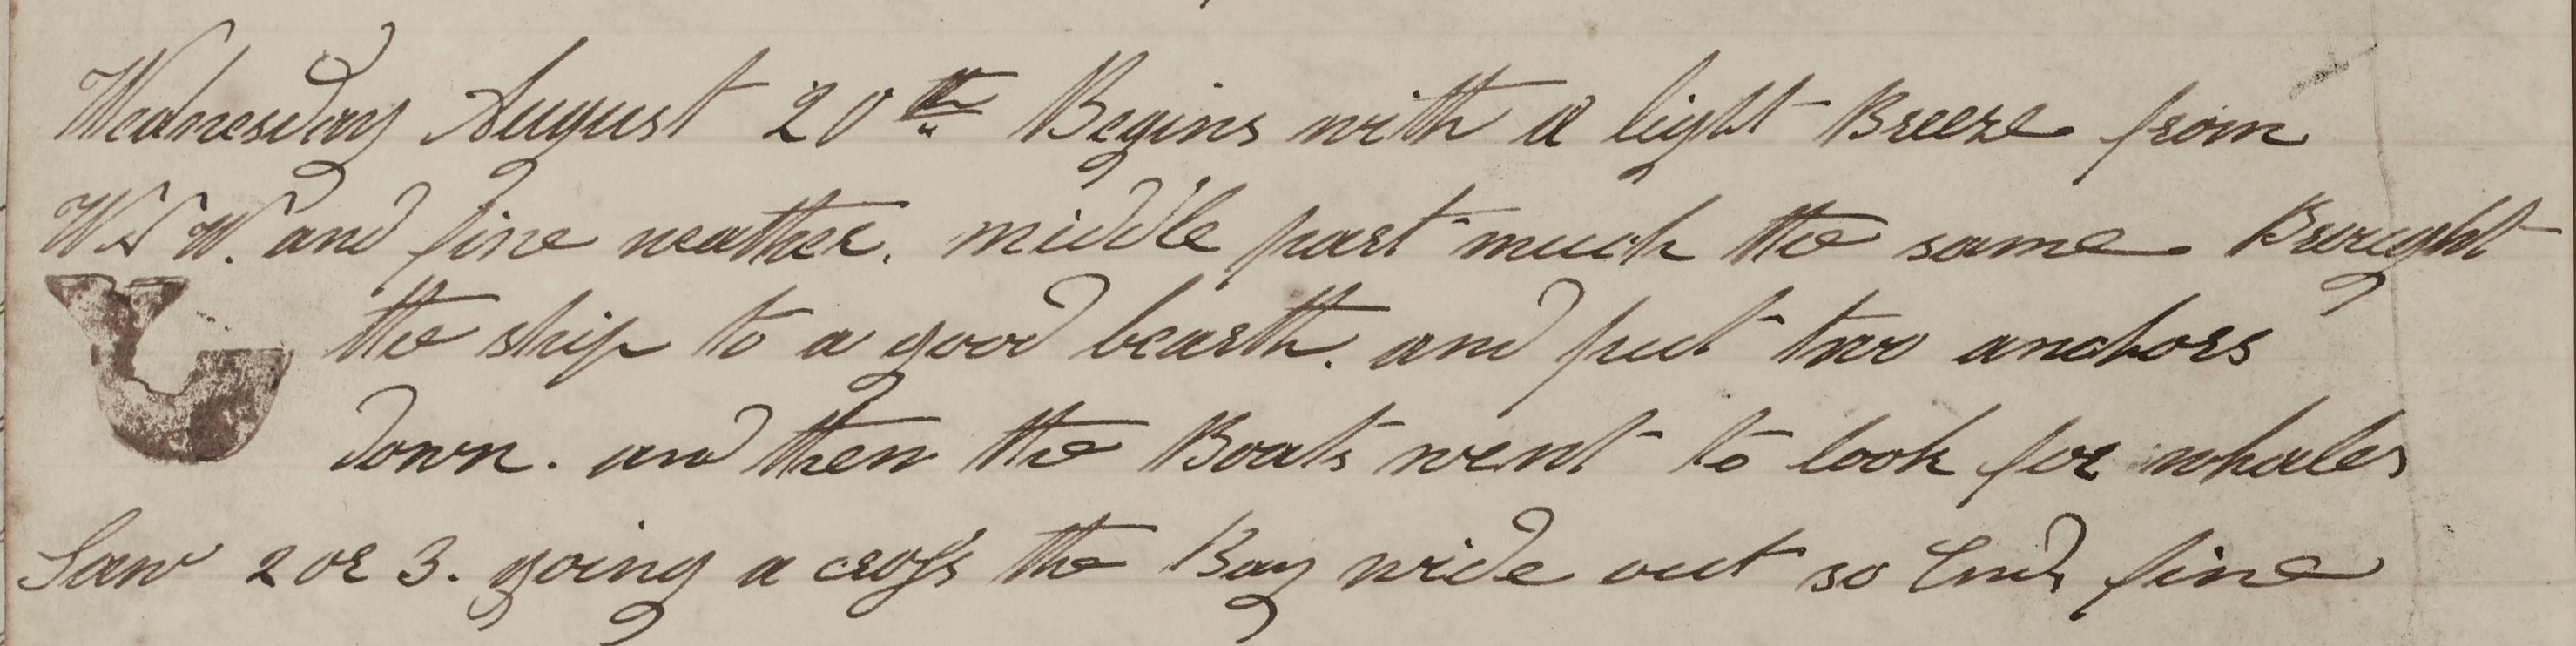 Wednesday August 20th Begins with a light Breeze from
W S W. and fine weather. middle part much the same Brought
the ship to a good bearth. and put two anchors
down. and then the Boats went to look for whales
Saw 2 or 3. going a cross the Bay wide out so Ends fine